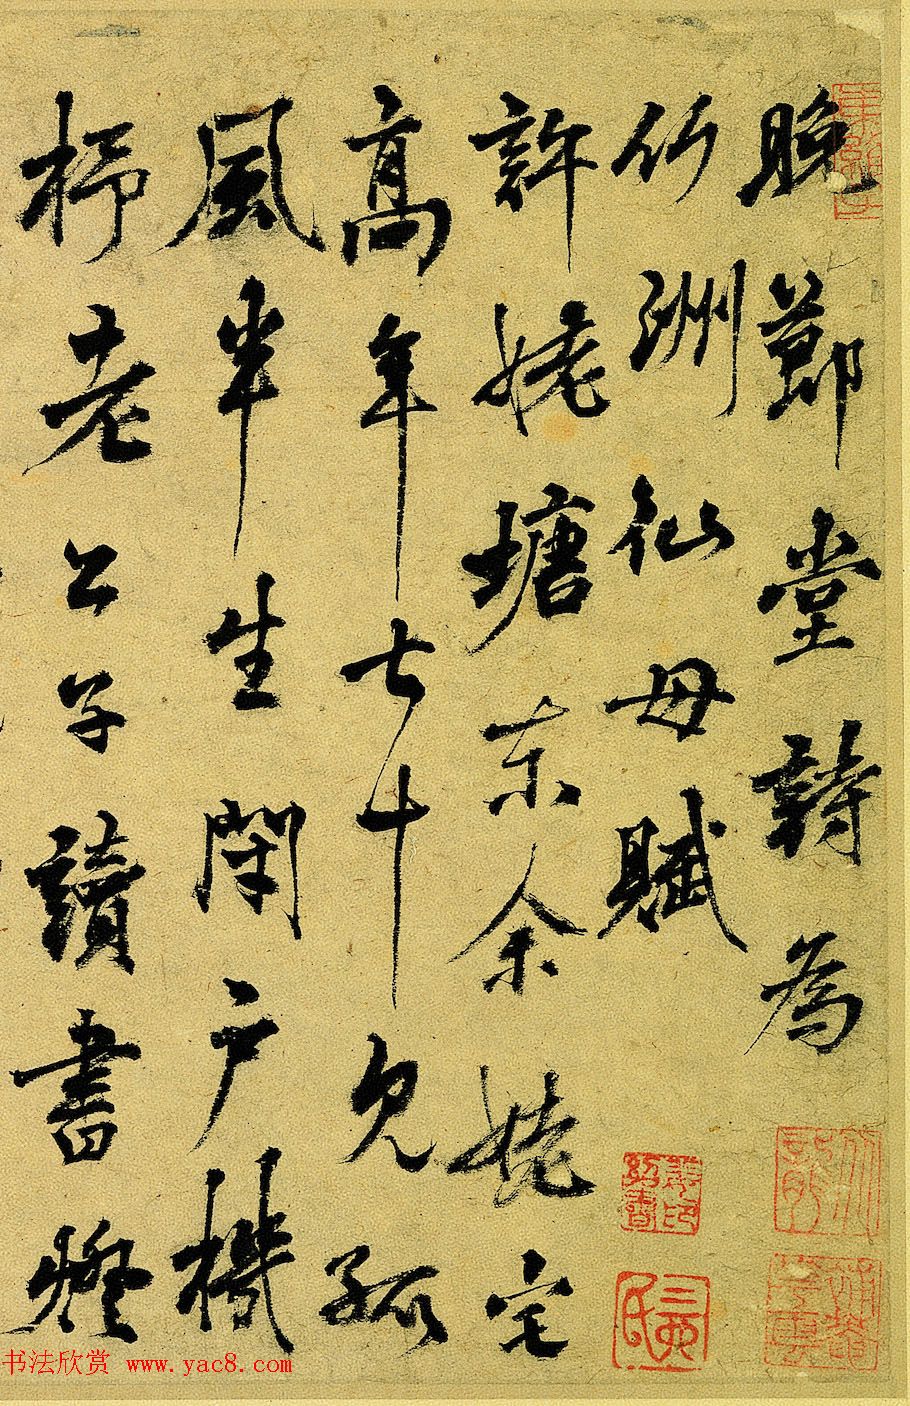 晚節堂詩為
竹洲仙母賦
許姥塘東余姥宅
高年七十見孤
風半生閉戶機
杼老公子讀書燈
书法欣赏 www.yac8.com